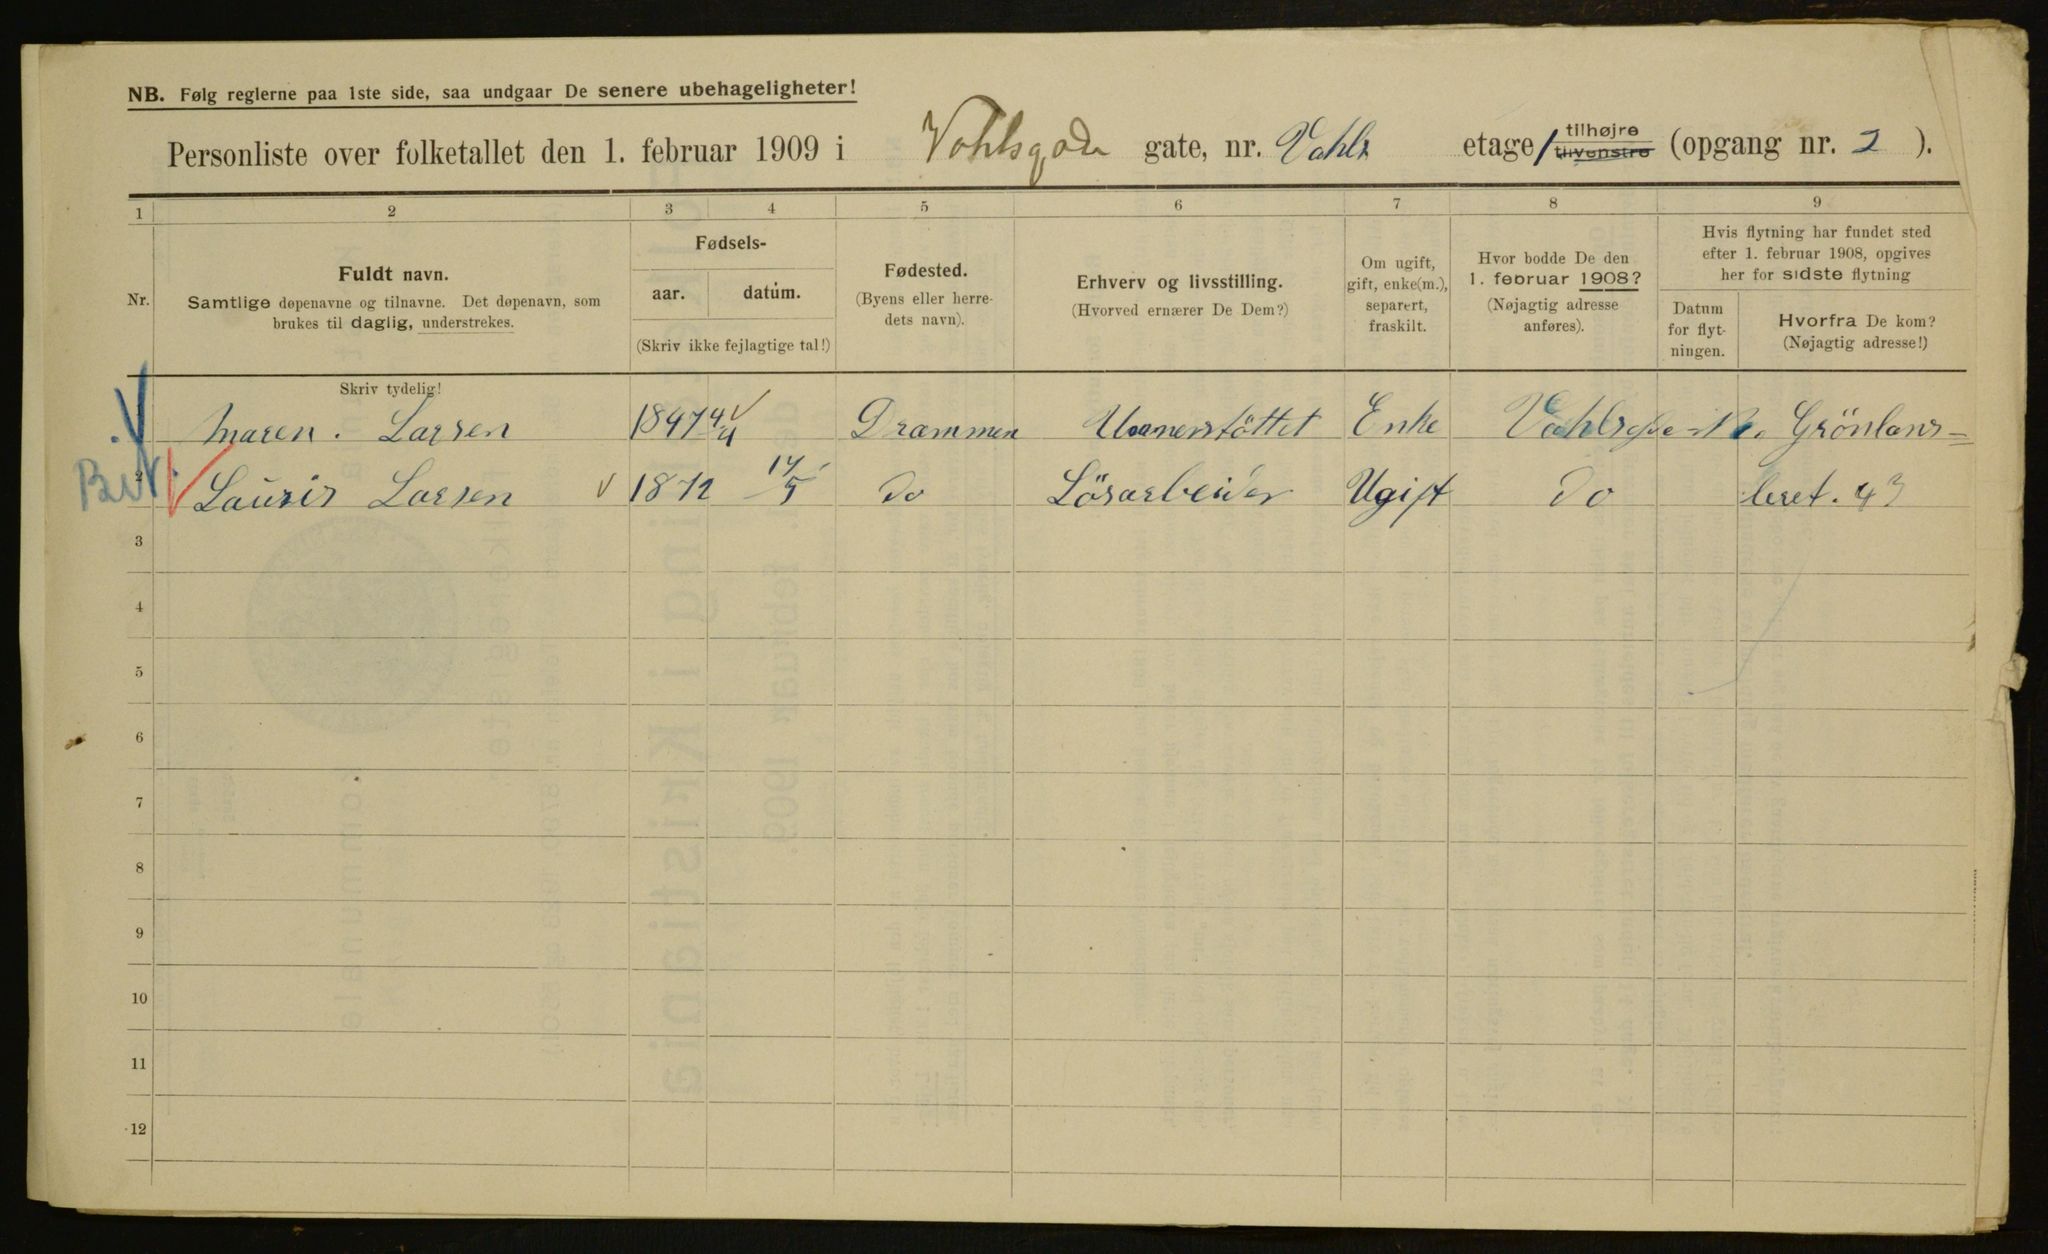 NB. Følg reglerne paa 1ste side, saa undgaar De senere ubehageligheter!
Personliste over folketallet den 1. februar 1909 i Vohlsgade gate, nr. Vahls etage 1 tilhøjre tilvenstre (opgang nr. 2 ).
1 2 3 4 5 6 7 8 9
Nr.
Fuldt navn.
Samtlige døpenavne og tilnavne. Det døpenavn, som
brukes til daglig, understrekes.
Fødsels-
aar. datum.
(Skriv ikke fejlagtige tal!)
Fødested.
(Byens eller herre-
dets navn).
Erhverv og livsstilling.
(Hvorved ernærer De Dem?)
Om ugift,
gift, enke(m.),
separert,
fraskilt.
Hvor bodde De den
1. februar 1908?
(Nøjagtig adresse
anføres).
Hvis flytning har fundet sted
efter 1. februar 1908, opgives
her for sidste flytning
Datum
for flyt-
ningen.
Hvorfra De kom?
(Nøjagtig adresse!)
Skriv tydelig!
Maren. Larsen 1847 4/4 Drammen Enke Grönlans=
2 Lauris Larsen 1872 17/5 do Lösarbeider Ugift do leret. 43
3
4
5
6
7
8
9
10
11
12